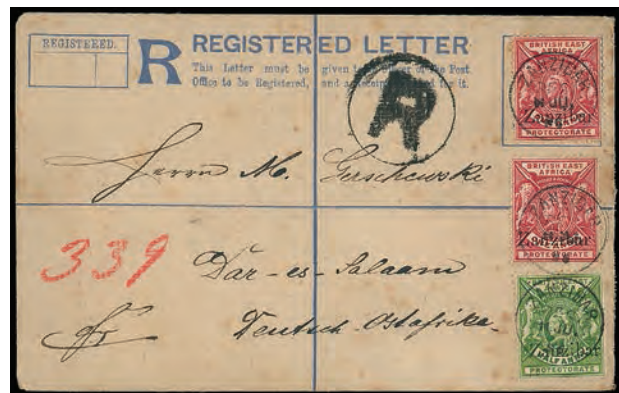 REGISTERED.
R REGISTERED LETTER
This Letter must be given to an Officer of the Post
Office to be Registered, and a Receipt obtained for it.
R
BRITISH EAST
AFRICA
ZANZIBAR
JUL
Zanzibar
PROTECTORATE
Herrn M. Gerschewski
BRITISH EAST
AFRICA
ZANZIBAR
Zanzibar
PROTECTORATE
339
Dar-es-Salaam
Deutsch Ostafrika
ZANZIBAR
JUL
Zanzibar
HALF ANNA
PROTECTORATE